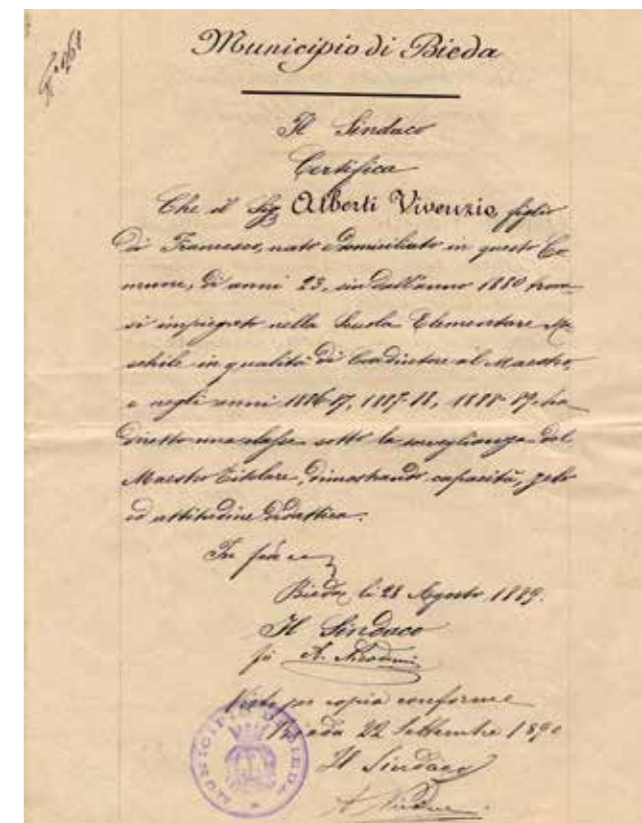 N° 1261
Municipio di Bieda
Il Sindaco
Certifica
Che il Sig. Alberti Vivenzio, figlio
di Francesco, nato e domiciliato in questo Co
mune, di anni 23, sin dall'anno 1880 trova
si impiegato nella Scuola Elementare Ma
schile in qualità di Coadiutore al Maestro,
e negli anni 1886-87, 1887-88, 1888-89 ha
diretto una classe sotto la sorveglianza del
Maestro Titolare, dimostrando capacità, zelo
ed attitudine didattica.
In fede
Bieda, li 28 Agosto 1889.
Il Sindaco
A. Nicodemi
Visto per copia conforme
Bieda 22 Settembre 1890
Il Sindaco
MUNICIPIO DI BIEDA